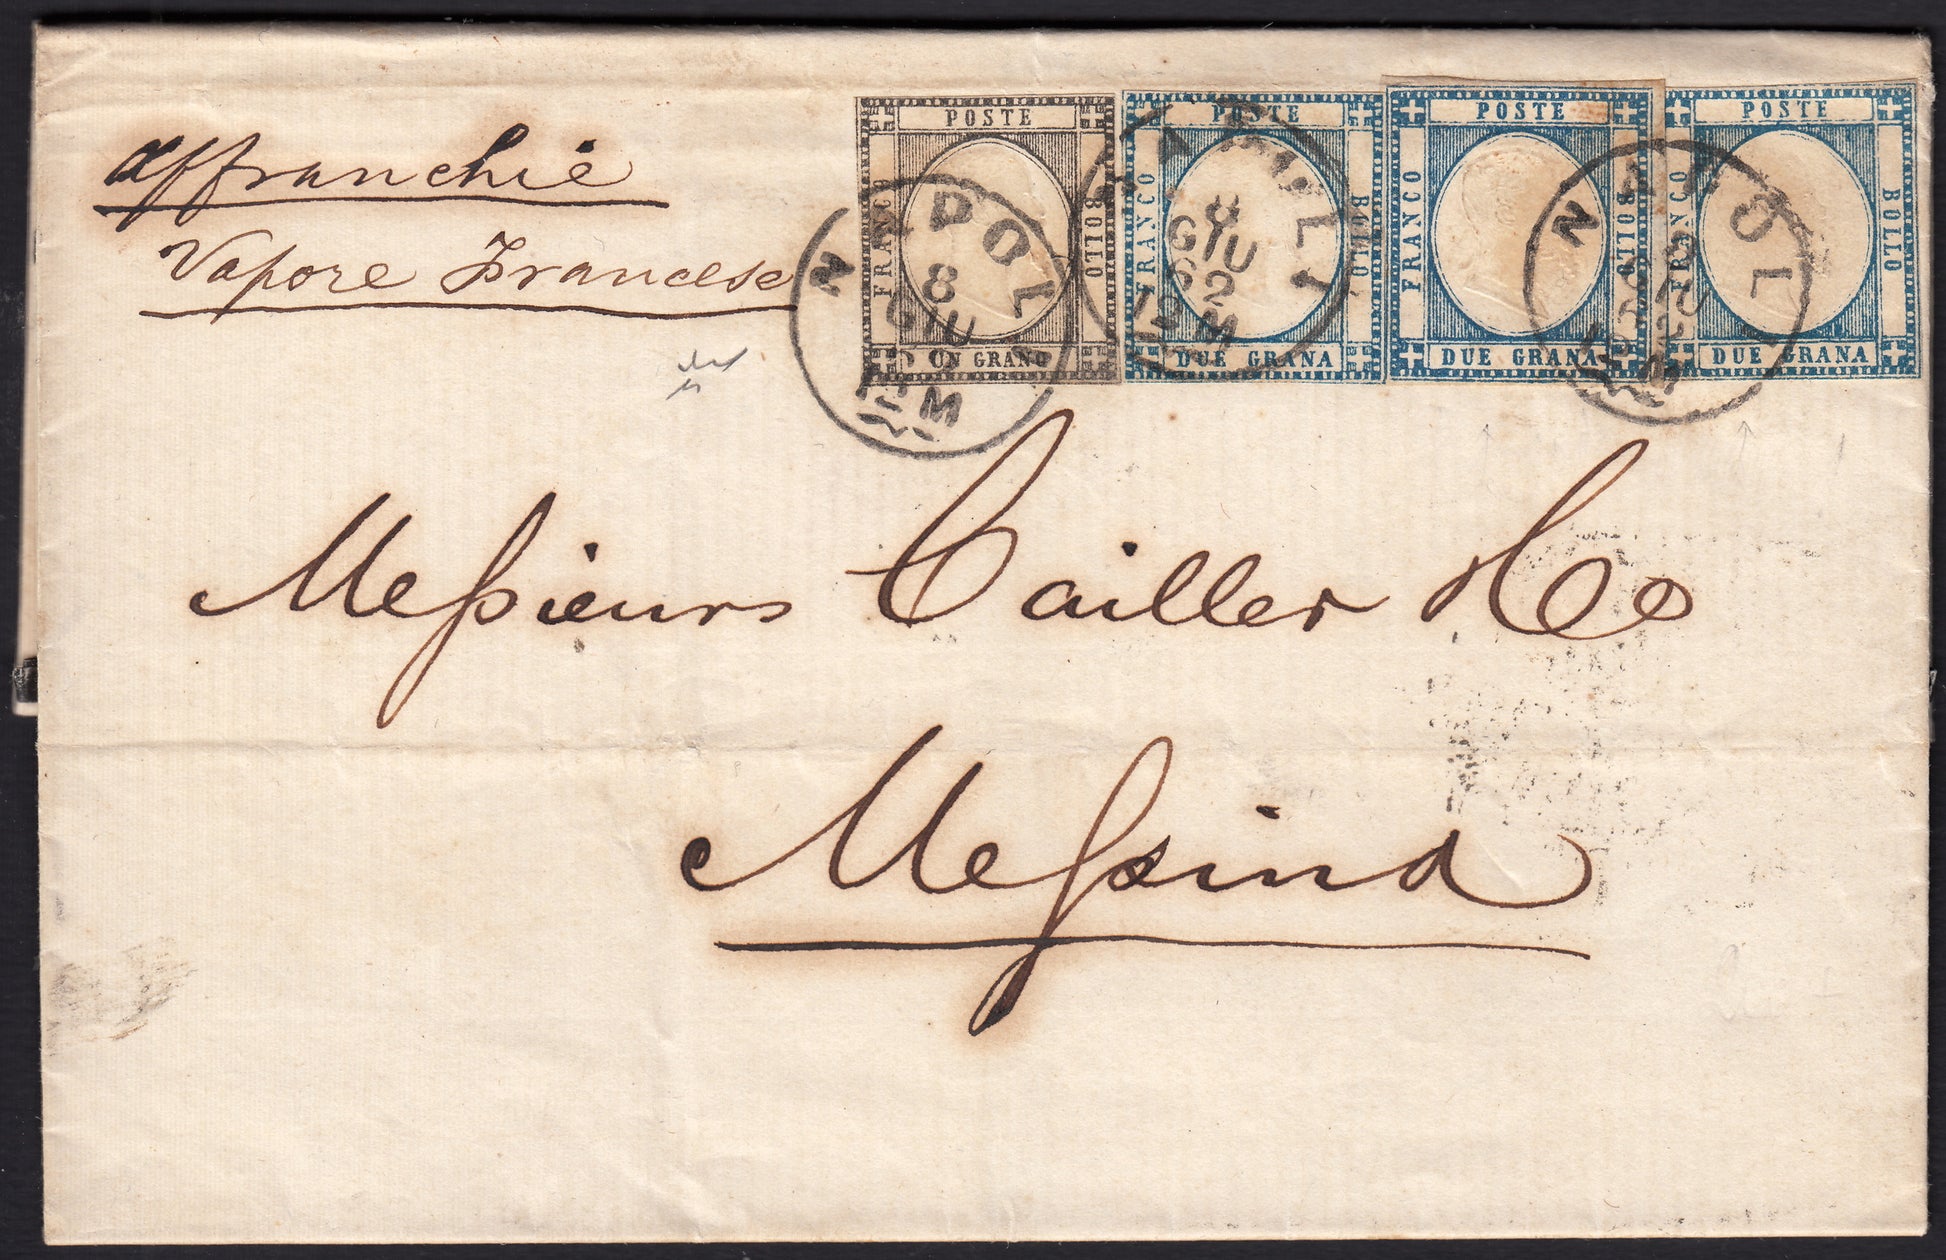 affranchie
Vapore Francese
POSTE
FRANCO
BOLLO
UN GRANO
POSTE
BOLLO
DUE GRANA
POSTE
FRANCO
BOLLO
DUE GRANA
POSTE
FRANCO
BOLLO
DUE GRANA
NAPOLI
8
GIU
12 M
NAPOLI
8
GIU
62
12 M
NAPOLI
8
GIU
12 M
Messieurs Cailler & Co
Messina